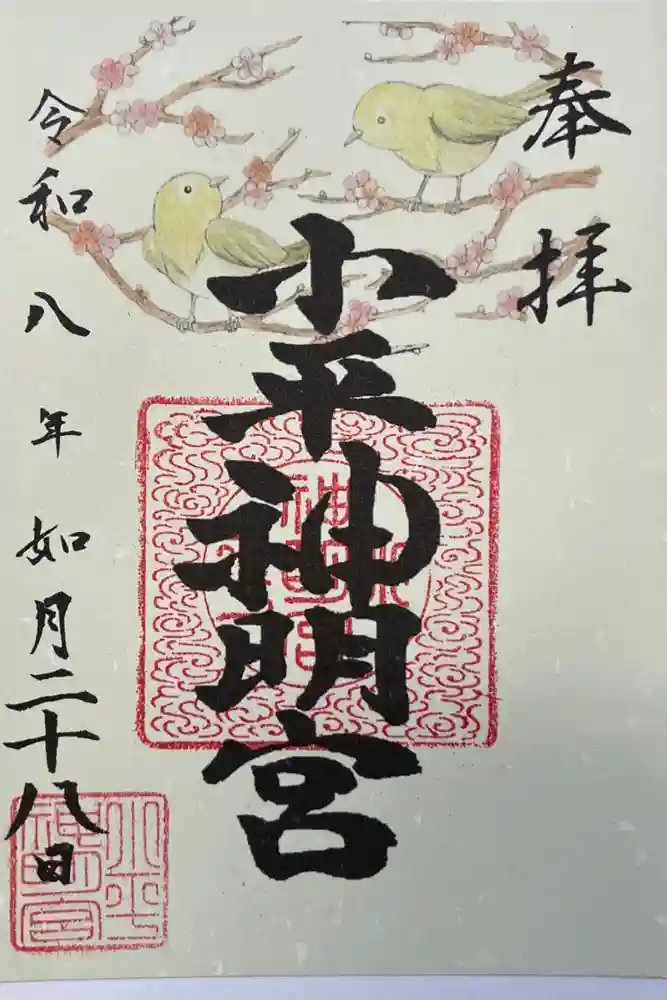 奉拝
小平神明宮
令和八年如月二十八日
小平
神明宮